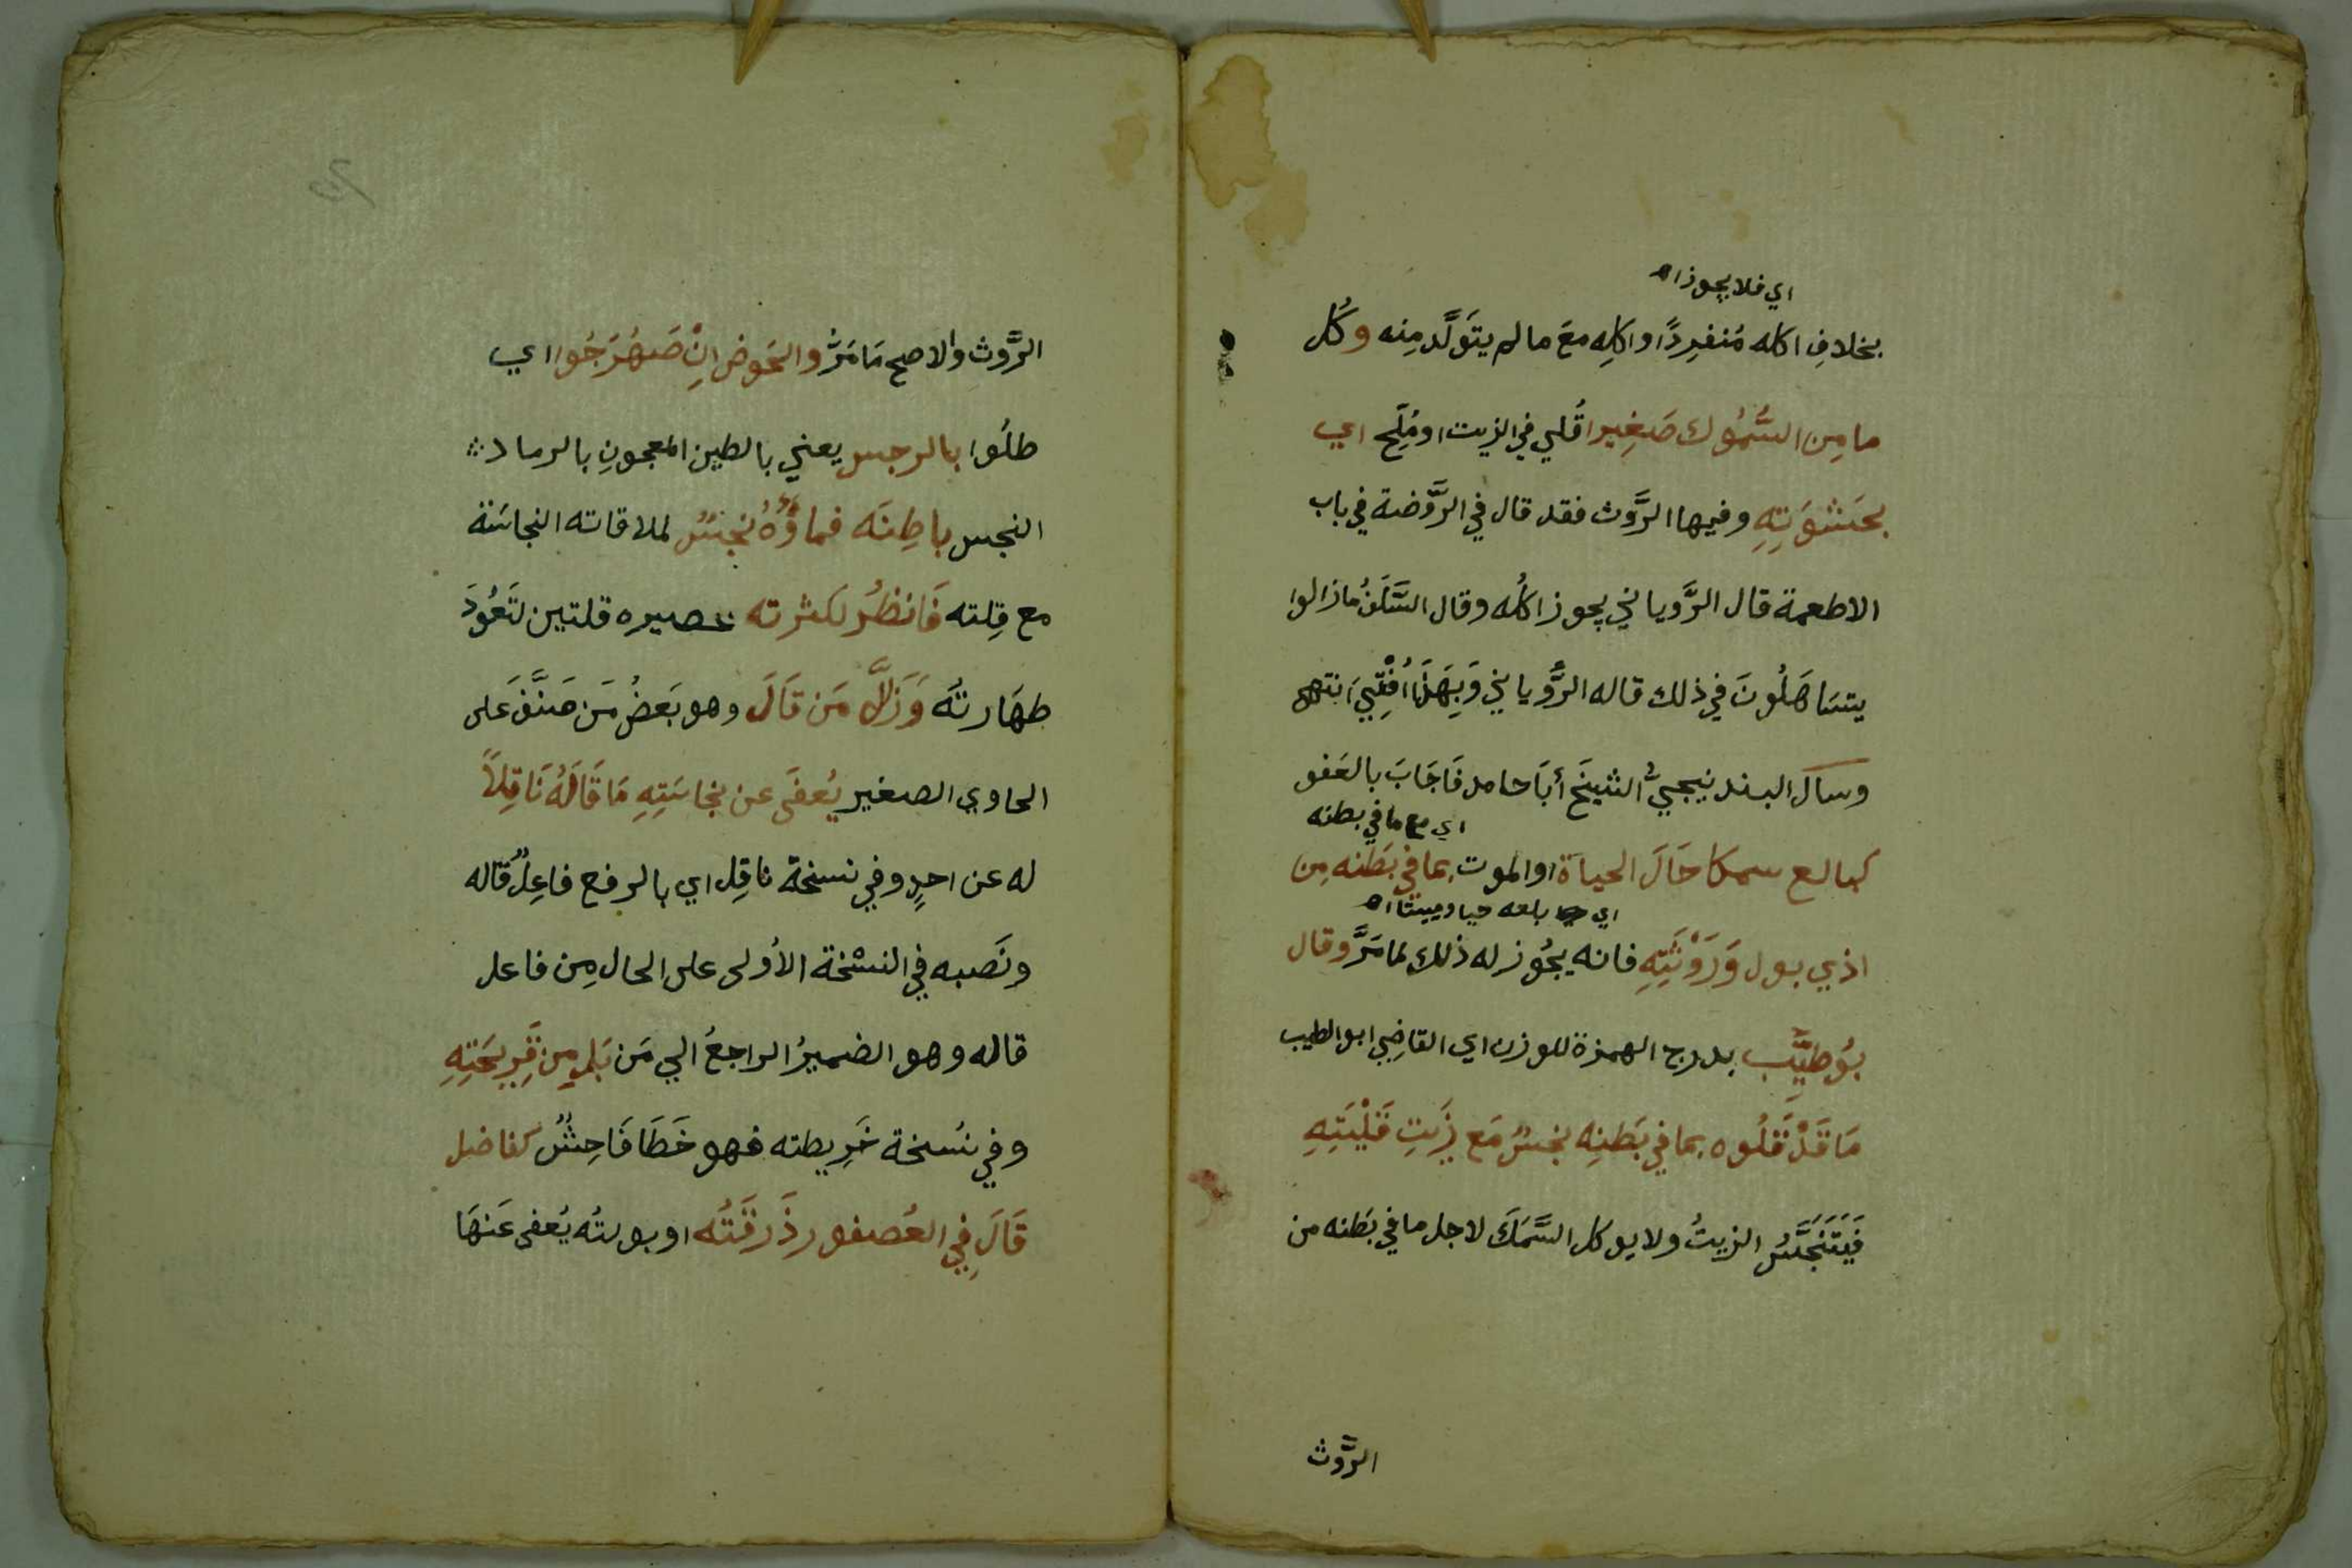 اي فلا يجوز اه
بخلافِ اكله مُنفرِدًا واكلِه معَ ما لم يتَولَّد مِنه وكُل
ما مِن السُّمُوك صَغِيرا قُلي في الزيت او مُلِّح اي
بحَشْوَتِهِ وفيها الرَّوث فقد قال في الرَّوضة في باب
الاطعمة قال الرَّوياني يجوز اكلُه وقال السَّلَفُ ما زالوا
يتسَاهَلُونَ في ذلك قاله الرُّوياني وَبِهَذَا أُفْتِيَ انتهى
وسال البندنيجيُّ الشيخَ أبَا حامد فَاجَابَ بالعَفو
اي مع ما في بطنه
كبالع سمكا حَالَ الحياة او الموت بما في بَطنه مِن
اي بلعه حيا وميتا اه
اذي بول وَرَوْثَتِهِ فانه يجُوز له ذلك لما مَرَّ وقال
بُوطيِّب بدرج الهمزة للوزن اي القاضِي ابو الطيب
مَا قَدْ قَلُوه بما في بَطنِه نجسٌ مَع زَيتِ قَلْيَتِهِ
فَيَتَنَجَّسُ الزيتُ ولا يوكل السَّمَكَ لاجل ما في بَطنه من
الرَّوث
الرَّوث والاصح مَا مَرَّ والحَوض انْ صَهْرَجُوا اي
طلَوا بالرجس يعني بالطين المعجونِ بالرماد
النجس باطِنَه فماؤُهُ نجسٌ لملاقاته النجاسَة
مع قِلته فَانظُر لكثرته بمصيره قلتين لتَعُودَ
طهَارتُه وَزَلَّ مَن قَالَ وهو بَعَضُ مَن صَنَّفَ على
الحاوي الصغير يُعفَى عن نجاسَتِهِ مَا قَالَهُ نَاقِلاً
له عن احدٍ وفي نسخة ناقِل اي بالرفع فاعِلُ قاله
ونَصَبه في النسْخة الأولى على الحال مِن فاعل
قاله وهو الضميرُ الراجعُ الي مَن بَل مِن قَرِيحَتِهِ
وفي نسُخة خَرِيطته فهو خَطَا فَاحِشٌ كفاضل
قَالَ فِي العُصفور ذَرقَتُه او بولتُه يُعفى عَنهَا